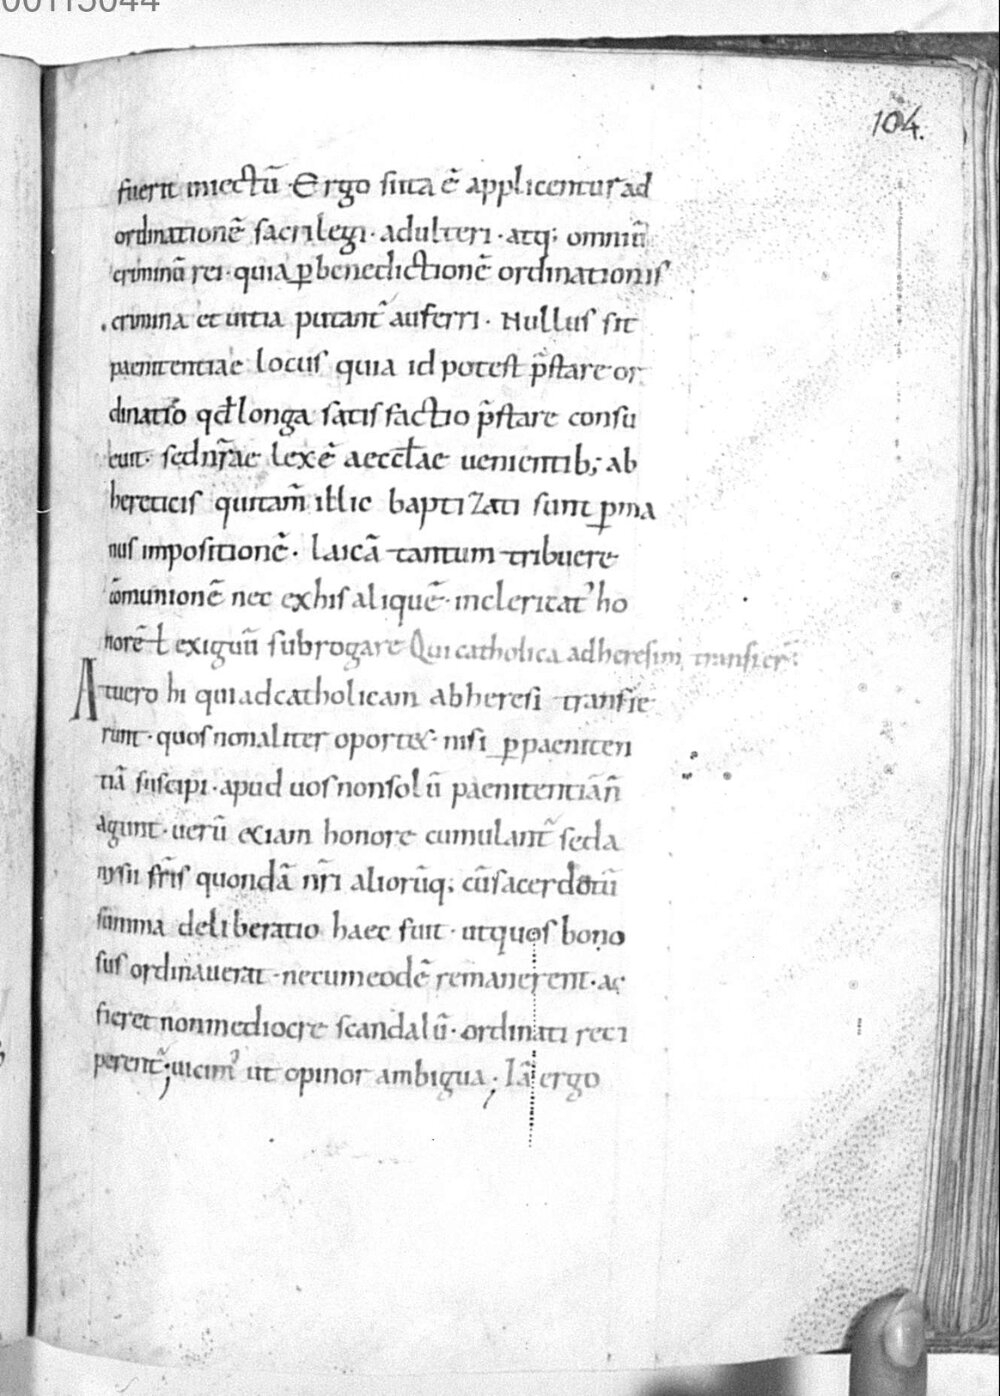 00115044
104.
fuerit iniectū · Ergo si ita ē̄ applicentur ad
ordinationē sacrilegi · adulteri · atq; omniū
criminū rei · quia ꝑ benedictionē ordinationis
crimina et uitia putant᷑ auferri · Nullus sit
paenitentiae locus quia id potest p̄stare or
dinatio qđ longa satisfactio p̄stare consu
euit · sed nr̄ae lex ē̄ aeccłae uenientib; ab
hereticis qui tam̄ illic baptizati sunt ꝑ ma
nus impositionē · laicā tantum tribuere
cōmunionē nec ex his aliquē · in clericat᷒ ho
norē ł exiguū subrogare Qui catholica ad heresim transier̄:
At uero hi qui ad catholicam ab heresi transie
runt · quos non aliter oportet · nisi ꝑ paeniten
tiā suscipi · apud uos non solū paenitentiā n̄
agunt · uerū etiam honore cumulant᷑ sed a
nysii fr̄is quondā nr̄i aliorūq; cū sacerdotū
summa deliberatio haec fuit · ut quos bono
sus ordinauerat · ne cum eodē remanerent · ac
fieret non mediocre scandalū · ordinati reci
perent᷑; uicim᷒ ut opinor ambigua; Iā ergo